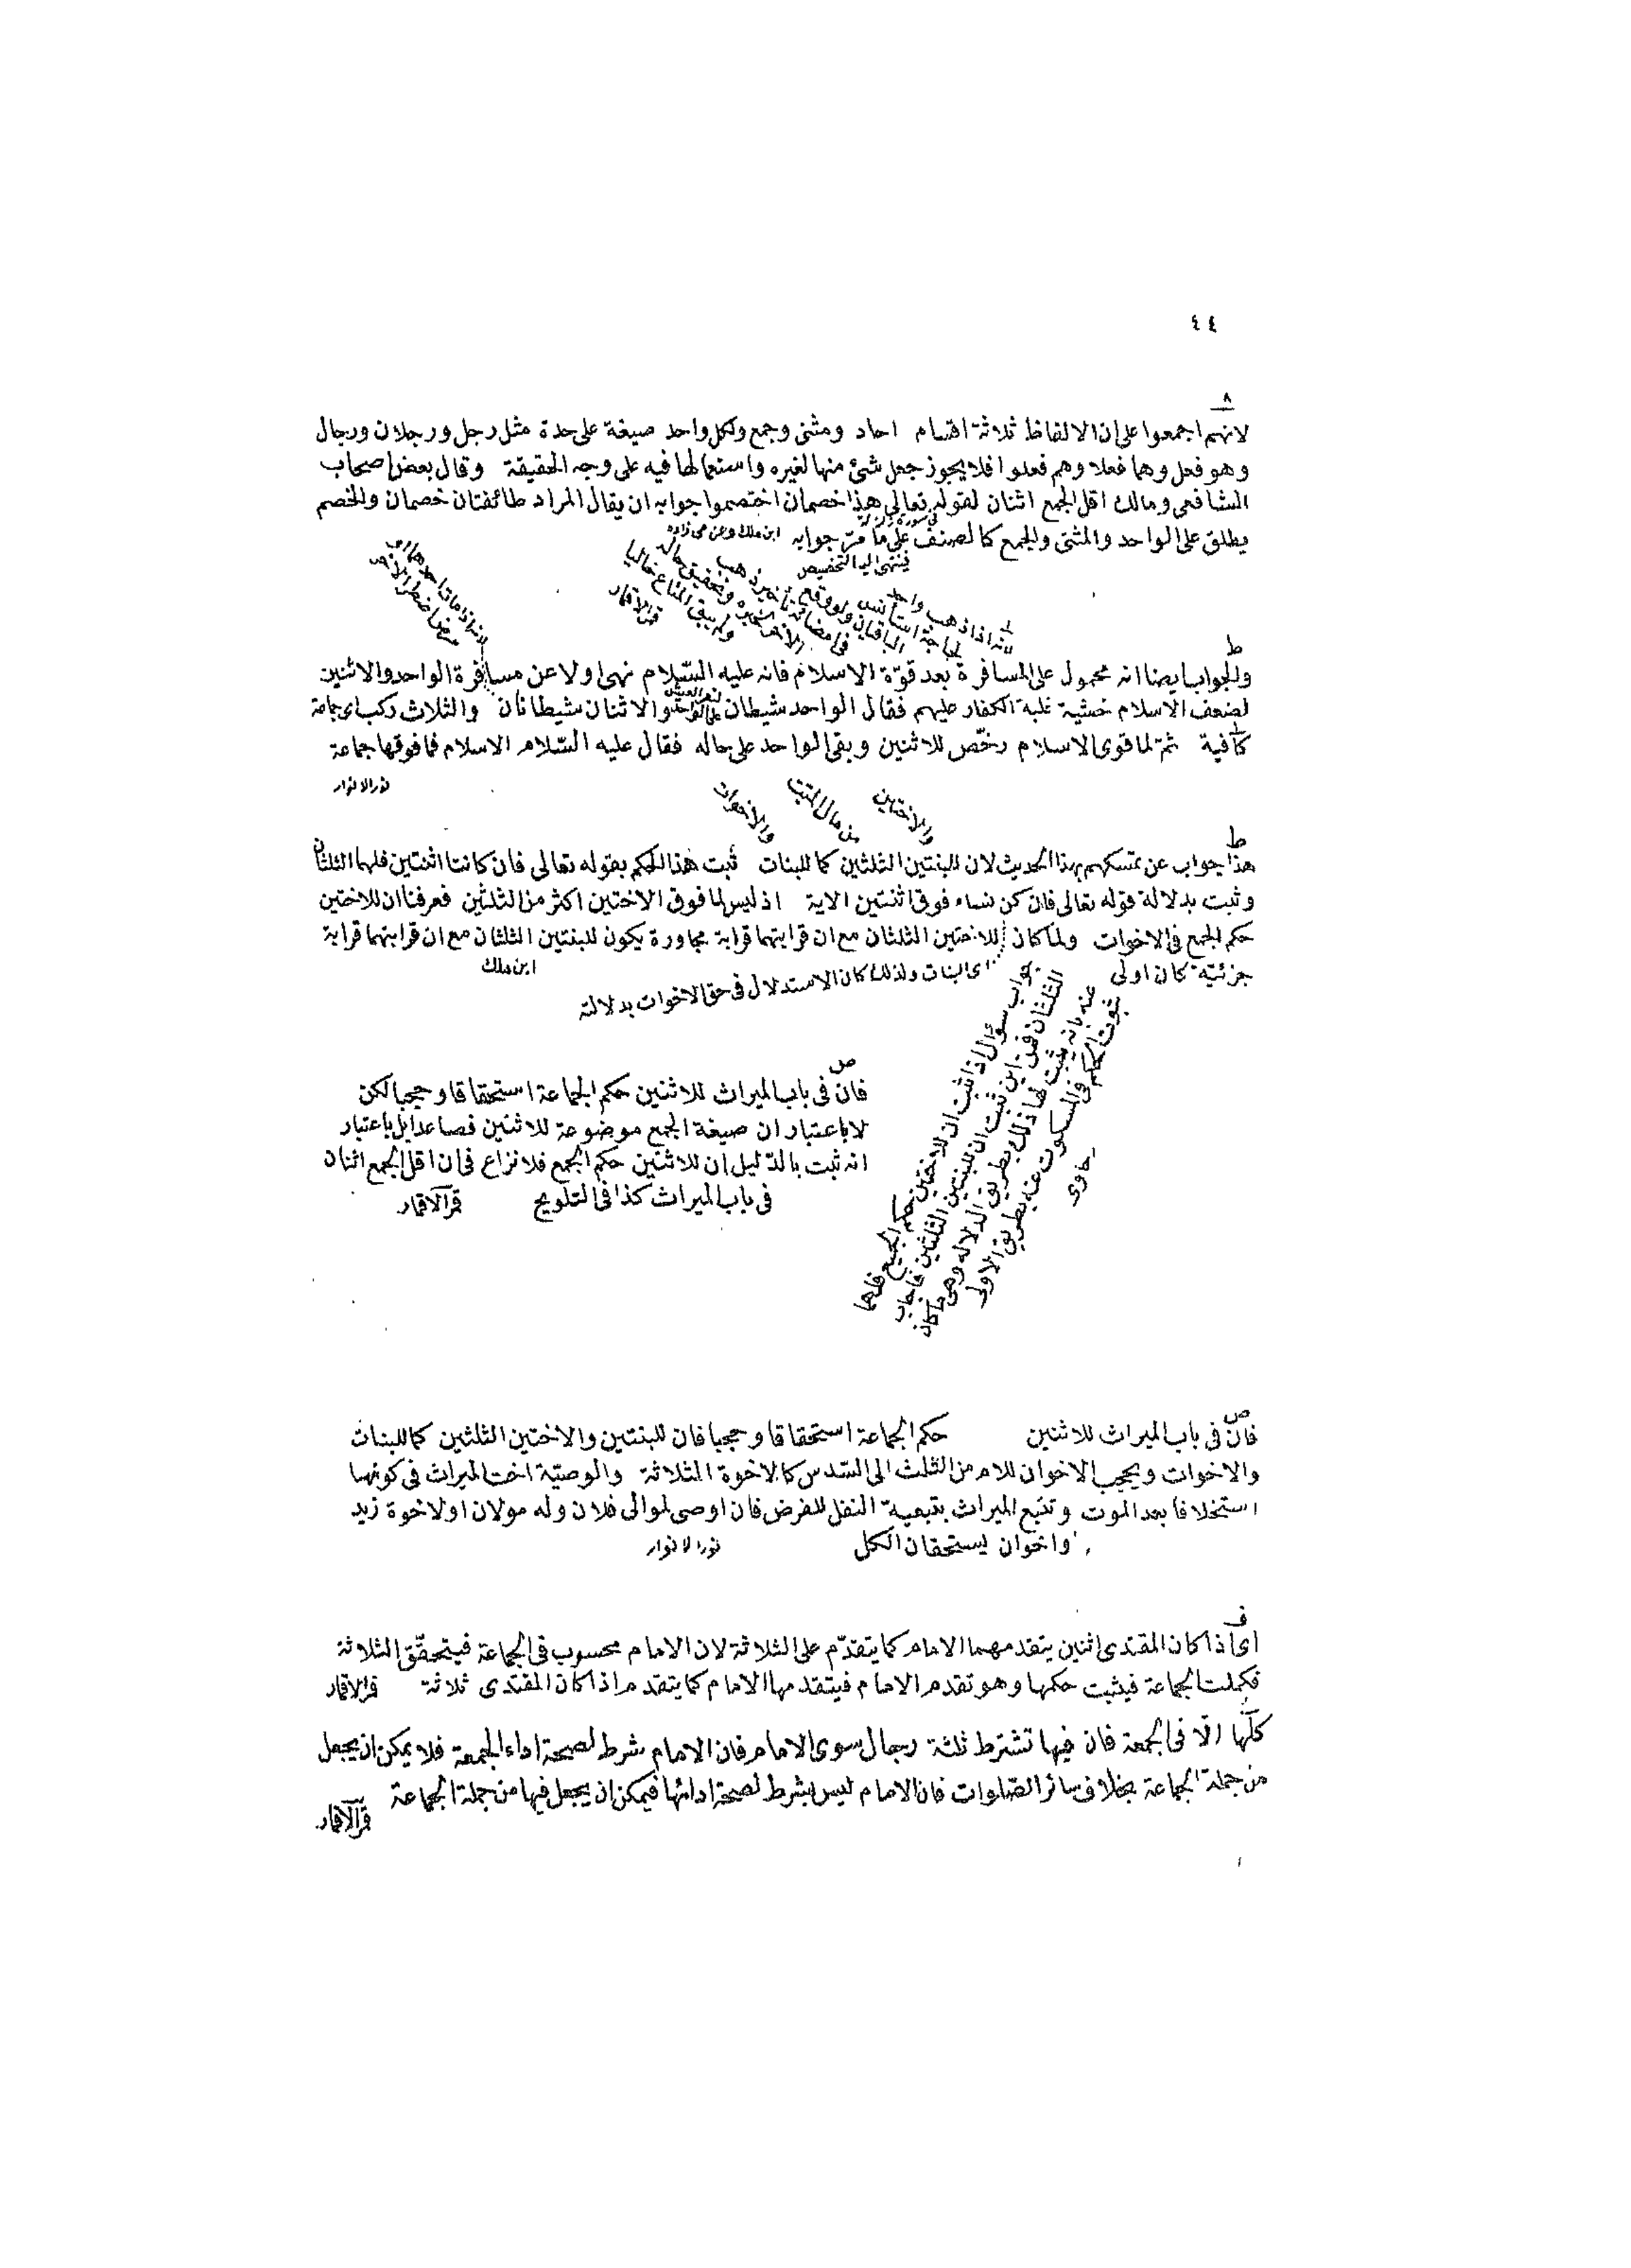 ٤٤
٨
لانهم اجمعوا على ان الالفاظ ثلاثة اقسام احاد ومثنى وجمع ولكل واحد صيغة على حدة مثل رجل ورجلان ورجال
وهو فعل وهما فعلا وهم فعلوا فلا يجوز جعل شئ منها لغيره واستعمالها فيه على وجه الحقيقة وقال بعض اصحاب
الشافعى ومالك اقل الجمع اثنان لقوله تعالى هذان خصمان اختصموا جوابه ان يقال المراد طائفتان خصمان والخصم
يطلق على الواحد والمثنى والجمع كالصنف على ما مرّ جوابه ابن ملك وعزمى زاده
فينتهى اليه التخصيص
لانه اذا ذهب واحد
لحاجة استأنس
الباقيان ولو وقع
قمر الاقمار
ط
والجواب ايضا انه محمول على المسافرة بعد قوّة الاسلام فانه عليه السّلام نهى اولا عن مسافرة الواحد والاثنين
لضعف الاسلام خشية غلبة الكفار عليهم فقال الواحد شيطان والاثنان شيطانان والثلاث ركب اى جماعة
كافية ثمّ لما قوى الاسلام رخّص للاثنين وبقى الواحد على حاله فقال عليه السّلام الاسلام فما فوقها جماعة
نور الانوار
والاختين
من مال الميت
والاخوات
ط
هذا جواب عن تمسكهم بهذا الحديث لان للبنتين الثلثين كما للبنات ثبت هذا الحكم بقوله تعالى فان كانتا اثنتين فلهما الثلثان
وثبت بدلالة قوله تعالى فان كن نساء فوق اثنتين الاية اذ ليس لما فوق الاختين اكثر من الثلثين فعرفنا ان للاختين
حكم الجمع فى الاخوات ولما كان للاختين الثلثان مع ان قرابتهما قرابة مجاورة يكون للبنتين الثلثان مع ان قرابتهما قرابة
جزئية كان اولى ابن ملك
اى البنات ولذلك كان الاستدلال فى حق الاخوات بدلالته
جواب سؤال اذا ثبت ان للاختين حكم الجميع فلهما
الثلثان فمن اين ثبت ان للبنتين الثلثين فاجاب
عنه بانه يثبت لهما ذلك بطريق الدلالة وهى ما كان
ثبوت الحكم فى المسكوت عنه بطريق الاولى
رهاوى
ص
فان فى باب الميراث للاثنين حكم الجماعة استحقاقا وحجبا لكن
لا باعتبار ان صيغة الجمع موضوعة للاثنين فصاعدا بل باعتبار
انه ثبت بالدّليل ان للاثنين حكم الجمع فلا نزاع فى ان اقل الجمع اثنان
فى باب الميراث كذا فى التلويح قمر الاقمار
ص
فان فى باب الميراث للاثنين حكم الجماعة استحقاقا وحجبا فان للبنتين والاختين الثلثين كما للبنات
والاخوات ويحجب الاخوان للام من الثلث الى السّدس كالاخوة الثلاثة والوصيّة اخت الميراث فى كونهما
استخلافا بعد الموت وتتبع الميراث بتبعية النفل للفرض فان اوصى لموالى فلان وله موليان او لاخوة زيد
واخوان يستحقان الكل نور الانوار
ف
اى اذا كان المقتدى اثنين يتقدمهما الامام كما يتقدّم على الثلاثة لان الامام محسوب فى الجماعة فيتحقّق الثلاثة
فكملت الجماعة فيثبت حكمها وهو تقدم الامام فيتقدمها الامام كما يتقدم اذا كان المقتدى ثلاثة قمر الاقمار
كلّها الّا فى الجمعة فان فيها تشترط ثلثة رجال سوى الامام فان الامام شرط لصحة اداء الجمعة فلا يمكن ان يجعل
من جملة الجماعة بخلاف سائر الصّلوات فان الامام ليس بشرط لصحة ادائها فيمكن ان يجعل فيها من جملة الجماعة
قمر الاقمار